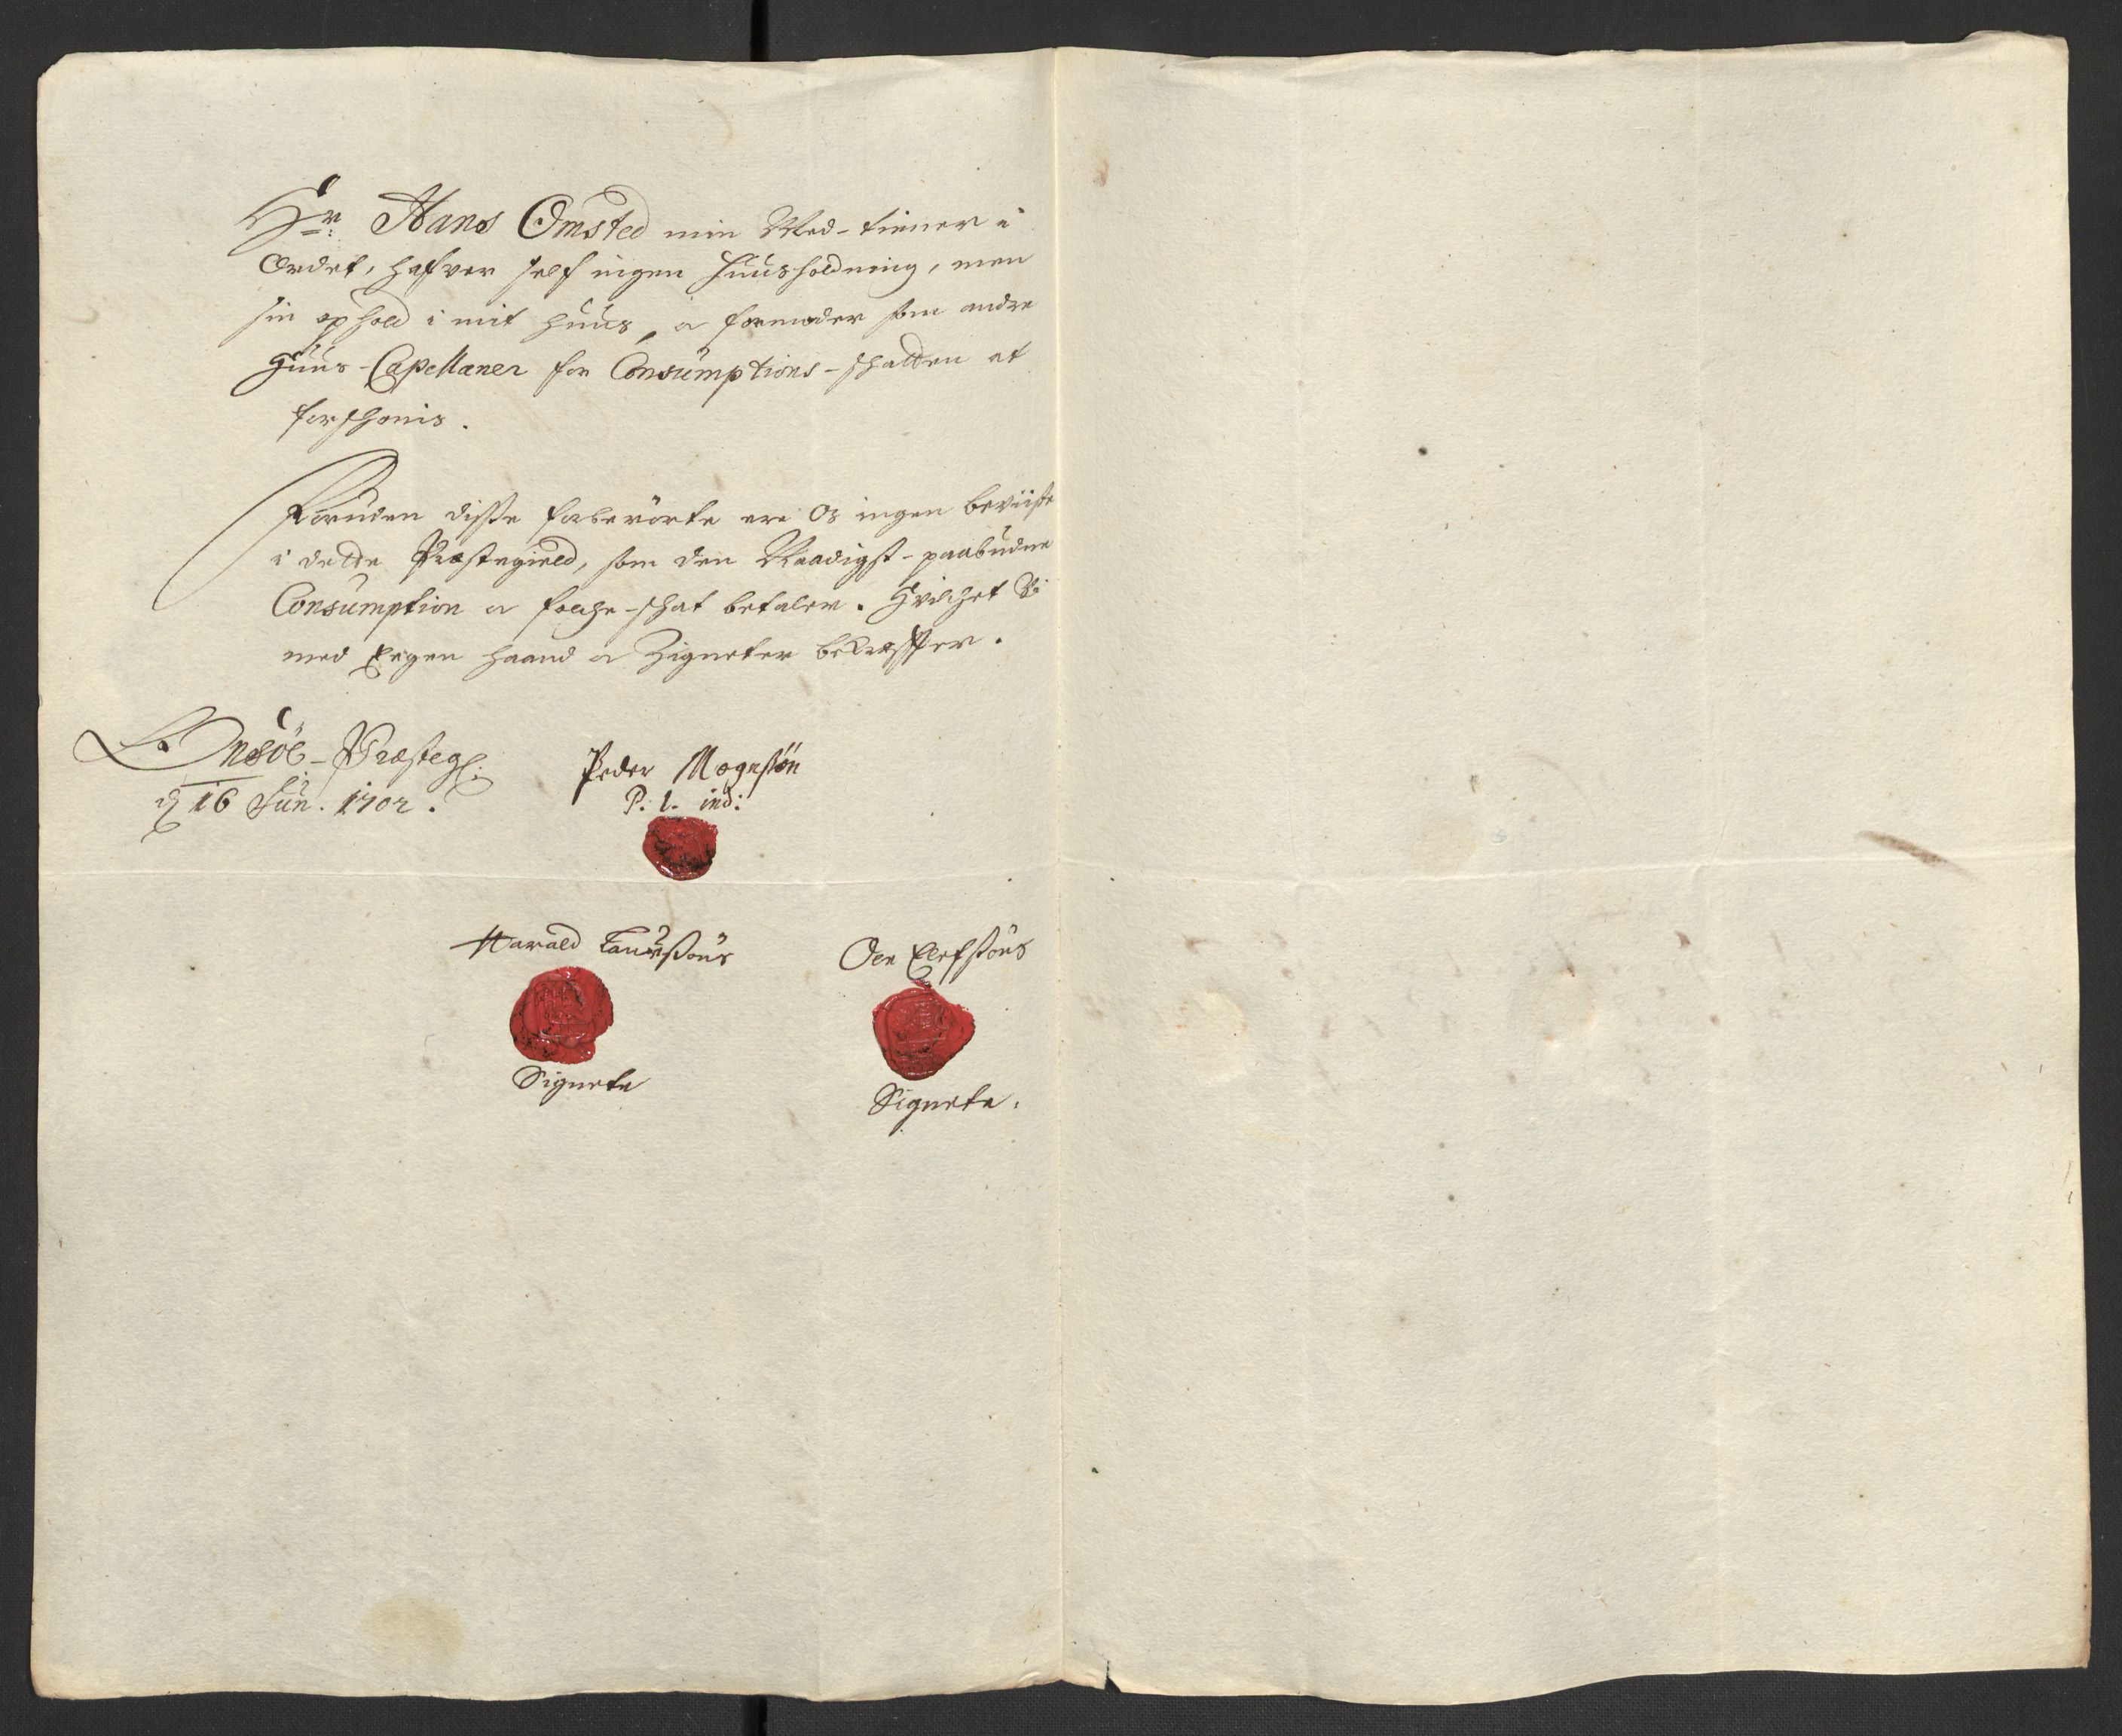 Hr: Hans Omsted min Med-tiener i
Ordet, hafver self ingen Huusholdning, men
sin ophold i mit huus, a formoder som andre
Huus-Capellaner for Consumptions-schatten at
forschonis.
Foruden disse forberörte ere os ingen beviiste
i dette Præstegield, som den Naadigst-paabudne
Consumption a folche-schat betaler. Hvilchet Vi
med Eegen haand a Zigneter bekræffter.
Onsöe-Præsteg:
d 16 Jun. 1702.
Peder Mogensön
P. l. ind:
Harald Laursöns
Signete
Ole Elefsöns
Signete.